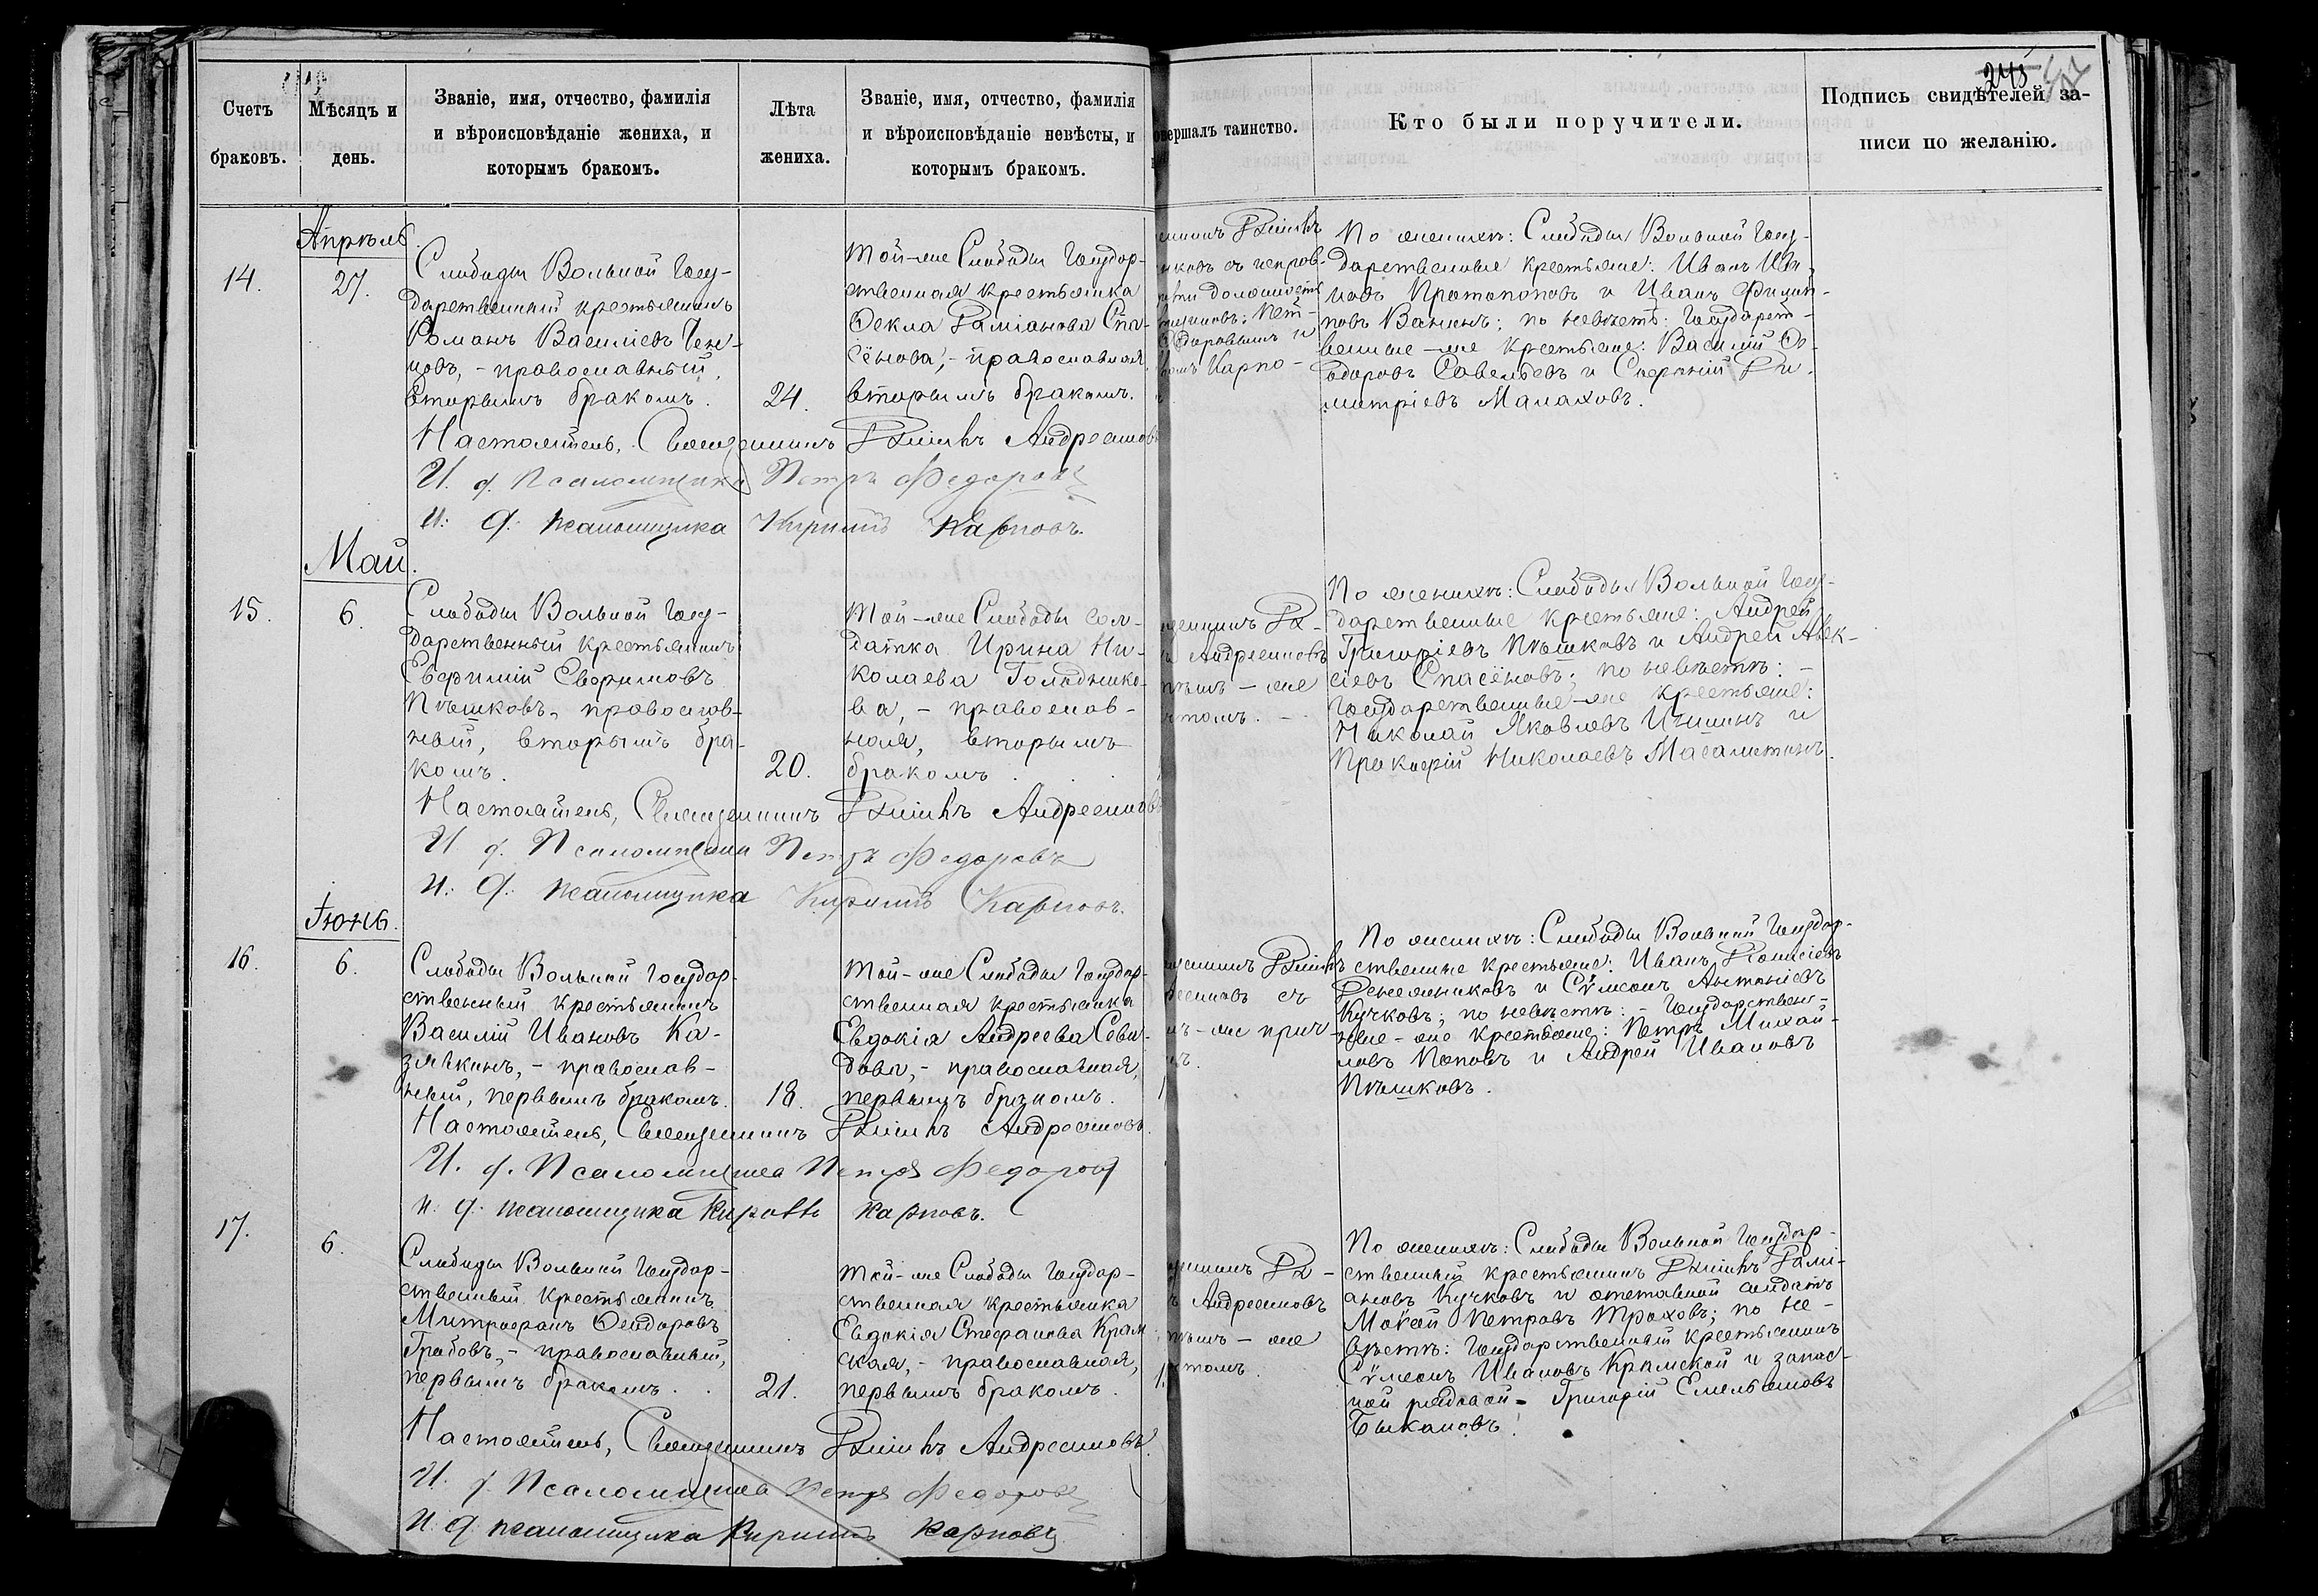 245
Счетъ
браковъ.
Мѣсяцъ и
день.
Званіе, имя, отчество, фамилія
и вѣроисповѣданіе жениха, и
которымъ бракомъ.
Лѣта
жениха.
Званіе, имя, отчество, фамилія
и вѣроисповѣданіе невѣсты, и
которымъ бракомъ.
овершалъ таинство.
Кто были поручители.
Подпись свидѣтелей за-
писи по желанію.
Апрѣль.
14.
27.
Слободы Вольной Госу-
дарственный крестьянинъ
Романъ Васильевъ
новъ, - православный,
вторымъ бракомъ.
24.
Той-же Слободы Государ-
ственная крестьянка
Ѳекла Даміанова Спа-
сёнова, - православная
вторымъ бракомъ.
По женихѣ: Слободы Вольной Госу-
дарственные крестьяне: Иванъ Ива-
новъ Протопоповъ и Иванъ Филип-
повъ Ванинъ; по невѣстѣ: Государст-
венные-же крестьяне: Василій Ѳе-
одоровъ Савельевъ и Сергѣй Ди-
митріевъ Малаховъ.
Настоятель, Священникъ Андреенковъ
И. д. Псаломщика Петръ Федоровъ
И. д. псаломщика Кириллъ Карповъ.
Май.
15.
6.
Слободы Вольной Госу-
дарственный крестьянинъ
Евфимій Евфимовъ
Пѣшковъ, православ-
ный, вторымъ бра-
комъ.
20.
Той-же Слободы сол-
датка Ирина Ни-
колаева Голоднико-
ва, - православ-
ная, вторымъ
бракомъ.
Андреенковъ
По женихѣ: Слободы Вольной Госу-
дарственные крестьяне: Андрей
Григоріевъ Пѣшковъ и Андрей Алек-
сіевъ Спасёновъ; по невѣстѣ: -
Государственные-же крестьяне:
Николай Яковлевъ и
Прокофій Николаевъ Масалитинъ.
Настоятель, Священникъ Андреенковъ
И. д. Псаломщика Петръ Федоровъ
И. д. псаломщика Кириллъ Карповъ.
Іюнь.
16.
6.
Слободы Вольной Государ-
ственный крестьянинъ
Василій Ивановъ Ка-
зячкинъ, - православ-
ный, первымъ бракомъ.
18.
Той-же Слободы Государ-
ственная крестьянка
Евдокія Андреева Севи-
дова, - православная,
первымъ бракомъ.
По женихѣ: Слободы Вольной Государ-
ственные крестьяне: Иванъ
и Сѵмеонъ Антоніевъ
Кучковъ; по невѣстѣ: - Государствен-
ные-же крестьяне: Петръ Михай-
ловъ Поповъ и Андрей Ивановъ
Пѣшковъ.
Настоятель, Священникъ Андреенковъ.
И. д. Псаломщика Петръ Федоровъ
И. д. псаломщика Кириллъ Карповъ.
17.
6.
Слободы Вольной Государ-
ственный крестьянинъ
Митрофанъ Ѳеодоровъ
Грабовъ, - православный,
первымъ бракомъ.
21.
Той-же Слободы Государ-
ственная крестьянка
Евдокія Стефанова Крам-
ская, - православная,
первымъ бракомъ.
Андреенковъ
По женихѣ: Слободы Вольной Государ-
ственный крестьянинъ Дамі-
ановъ Кучковъ и отставной солдатъ
Мокей Петровъ Троховъ; по не-
вѣстѣ: Государственный крестьянинъ
Сѵмеонъ Ивановъ Крамской и запас-
ной рядовой - Григорій Емельяновъ
Быкановъ.
Настоятель, Священникъ Андреенковъ.
И. д. Псаломщика Петръ Федоровъ
И. д. псаломщика Кириллъ Карповъ